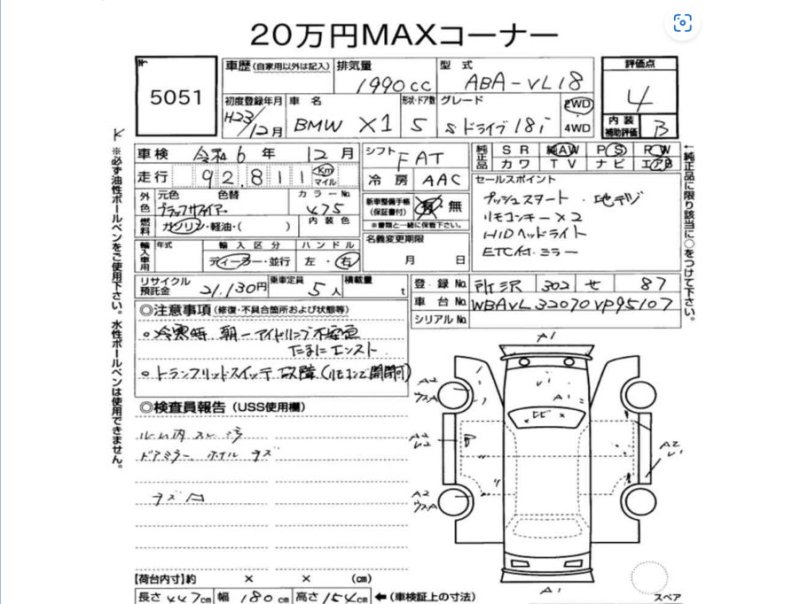 20万円MAXコーナー
№ 5051
車歴(自家用以外は記入) 排気量 1990cc 型式 ABA-VL18
評価点 4
初度登録年月 H23/12月 車名 BMW X1 形状・ドア数 5 グレード Sドライブ18i 2WD 4WD
内装補助評価 B
車検 令和6年12月 シフト FAT
純正品 SR 純AW PS PW カワ TV ナビ エアB
走行 92,811 Km マイル 冷房 AAC
セールスポイント
外色 元色 ブラックサファイアー 色替 カラーNo. 475
新車整備手帳(保証書付) 有 無
※書類と一緒に保管下さい。
プッシュスタート・地デジ
リモコンキー×2
HIDヘッドライト
ETC付ミラー
燃料 ガソリン・軽油・( ) 内装色
名義変更期限 月 日
輸入車用 年式 輸入区分 ディーラー・並行 ハンドル 左・右
リサイクル預託金 21,130円 乗車定員 5人 積載量 t
登録No. 所沢 302 せ 87
車台No. WBAVL32070VP95107
シリアルNo.
◎注意事項(修復・不具合箇所および状態等)
○冷寒時 朝一アイドリング不安定
たまにエンスト
○トランクリッドスイッチ故障(リモコンで開閉可)
◎検査員報告(USS使用欄)
ドアミラー ホイル キズ
A1
A2
A1
A2
A2
A2
A1
スペア
【荷台内寸】約 × × (cm)
長さ 447cm 幅 180cm 高さ 154cm ←(車検証上の寸法)
※必ず油性ボールペンをご使用下さい。水性ボールペンは使用できません。
↑純正品に限り該当に○をつけて下さい。